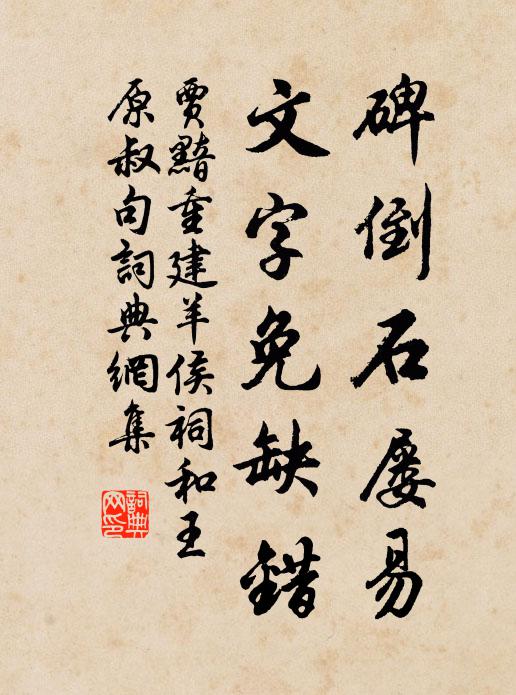 碑倒石屡易
文字免缺錯
賈黯重建羊侯祠和王
原叔句詞典網集
詞典网印